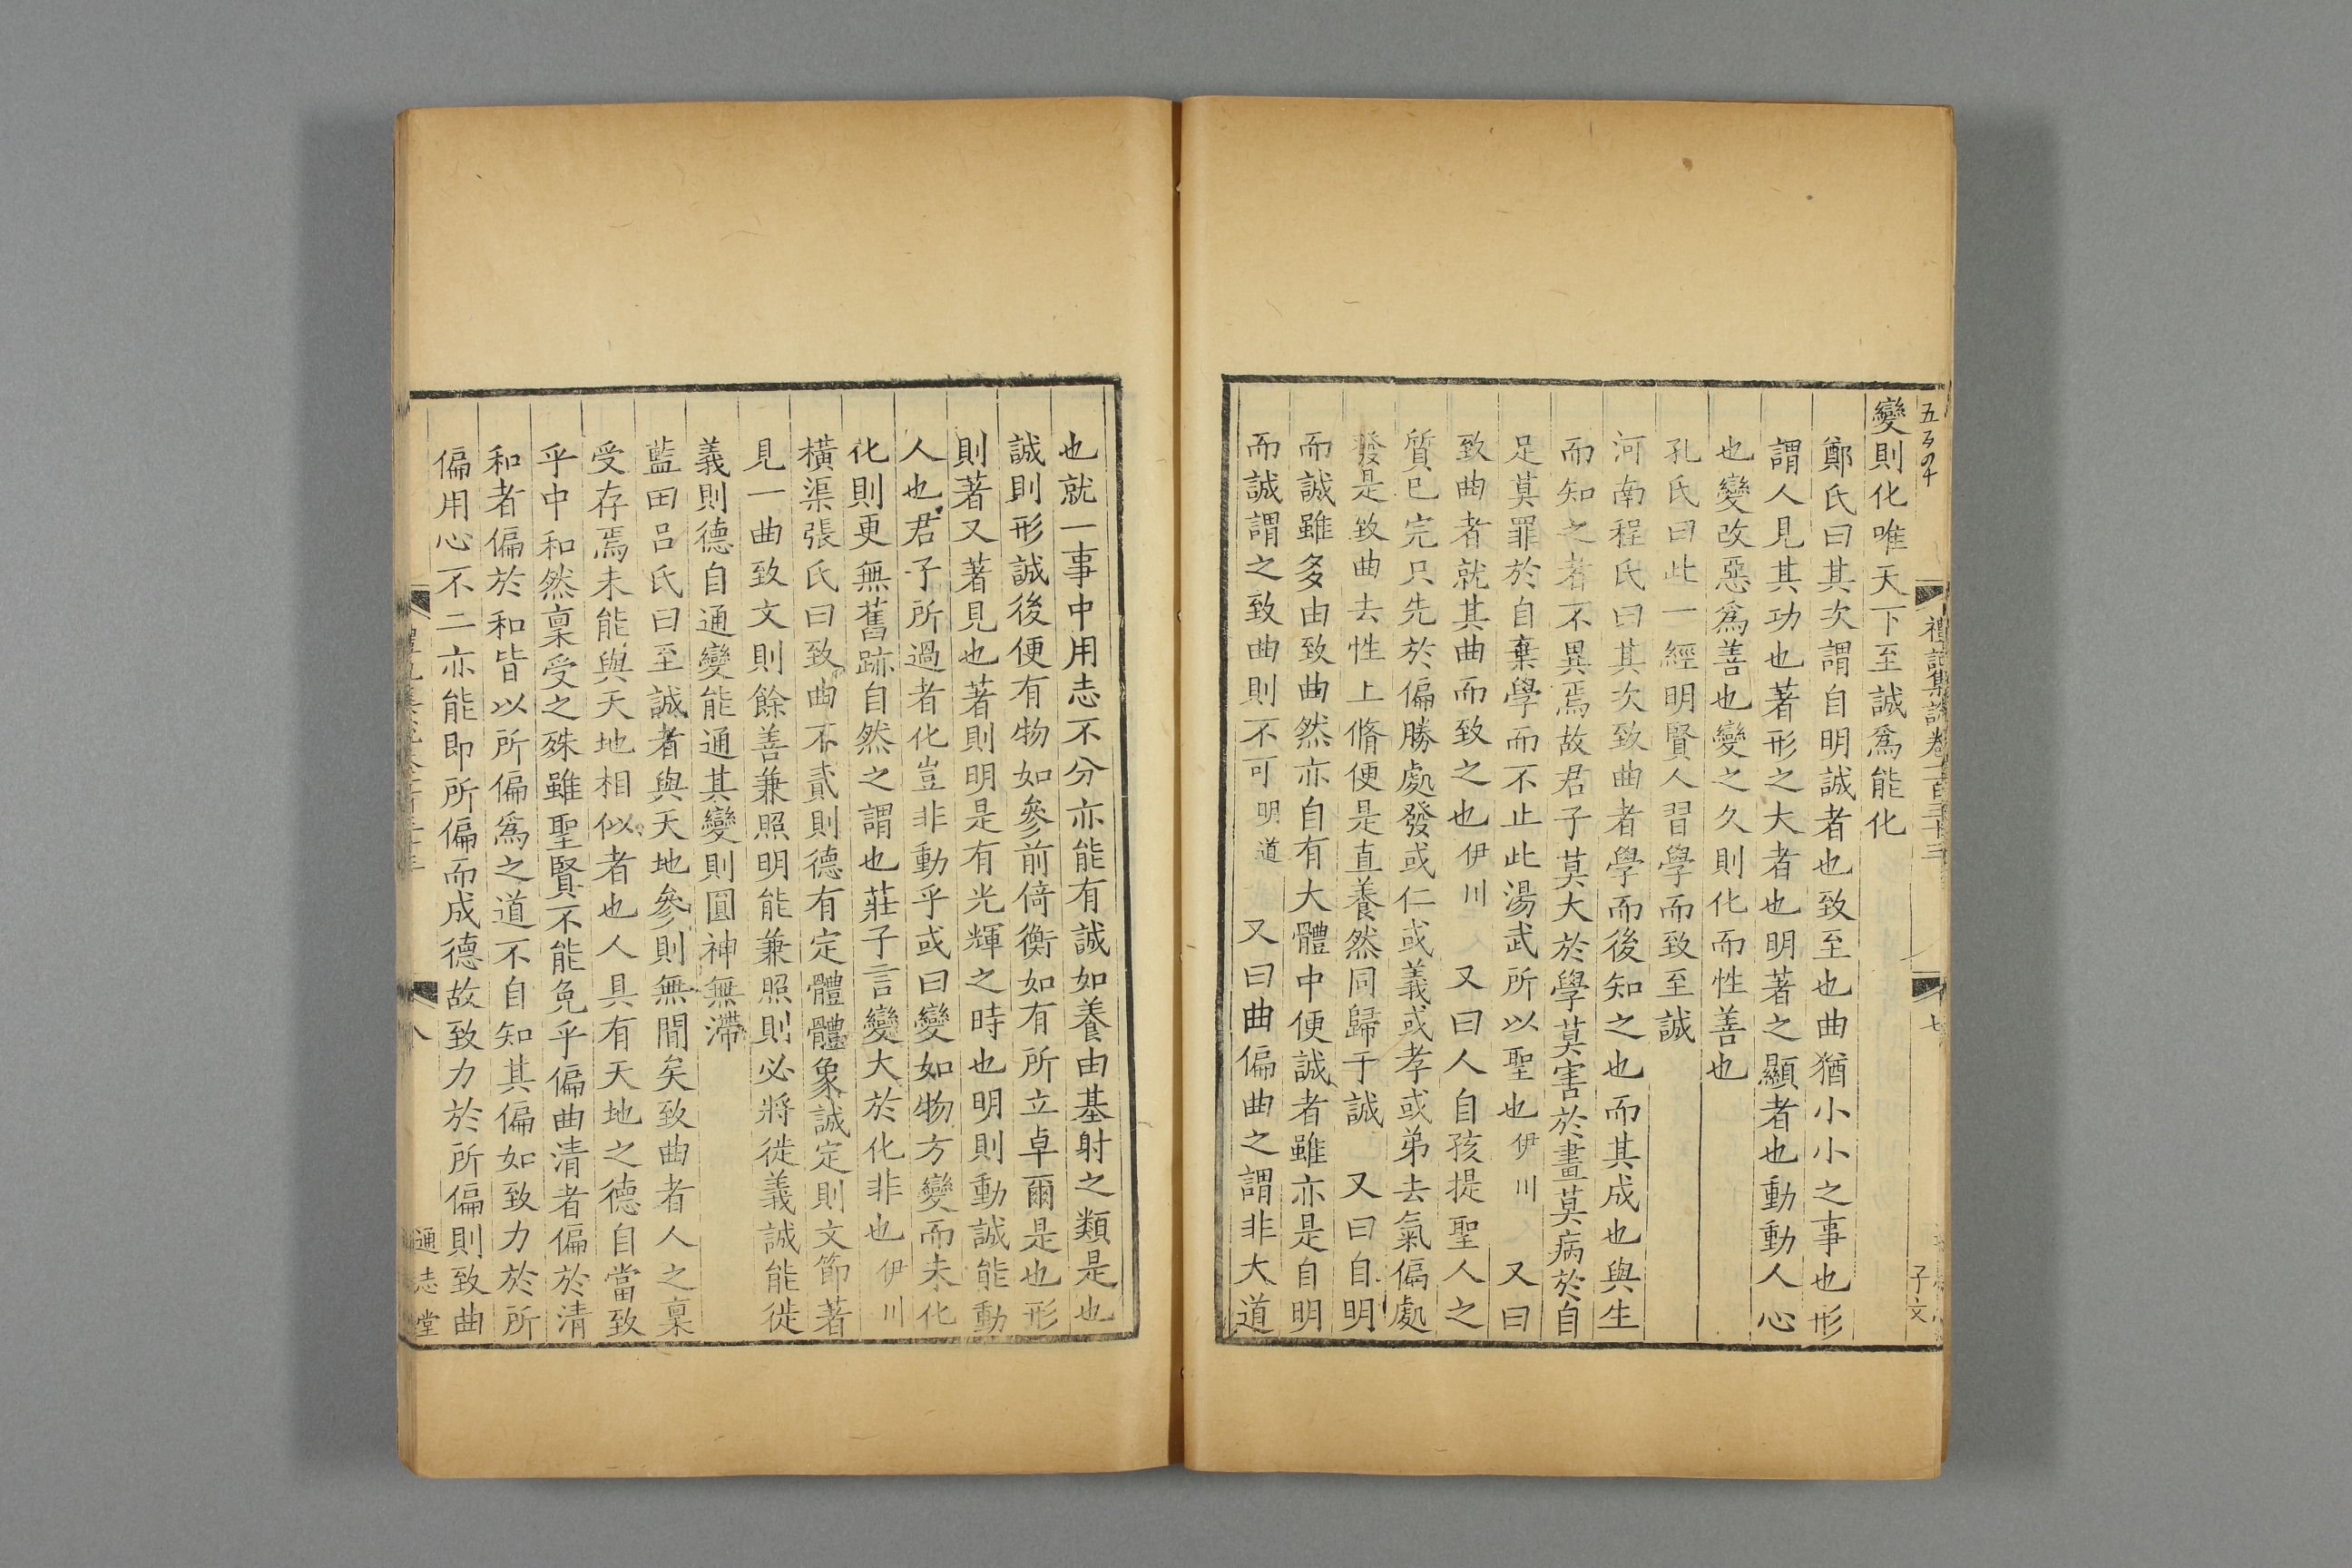 變則化唯天下至誠爲能化
鄭氏曰其次謂自明誠者也致至也曲猶小小之事也形
謂人見其功也著形之大者也明著之顯者也動動人心
也變改惡爲善也變之久則化而性善也
孔氏曰此一經明賢人習學而致至誠
河南程氏曰其次致曲者學而後知之也而其成也與生
而知之者不異焉故君子莫大於學莫害於畫莫病於自
足莫罪於自棄學而不止此湯武所以聖也伊川 又曰
致曲者就其曲而致之也伊川 又曰人自孩提聖人之
質已完只先於偏勝處發或仁或義或孝或弟去氣偏處
發是致曲去性上脩便是直養然同歸于誠 又曰自明
而誠雖多由致曲然亦自有大體中便誠者雖亦是自明
而誠謂之致曲則不可明道 又曰曲偏曲之謂非大道
也就一事中用志不分亦能有誠如養由基射之類是也
誠則形誠後便有物如參前倚衡如有所立卓爾是也形
則著又著見也著則明是有光輝之時也明則動誠能動
人也君子所過者化豈非動乎或曰變如物方變而未化
化則更無舊跡自然之謂也莊子言變大於化非也伊川
橫渠張氏曰致曲不貳則德有定體體象誠定則文節著
見一曲致文則餘善兼照明能兼照則必將徙義誠能徙
義則德自通變能通其變則圓神無滯
藍田呂氏曰至誠者與天地參則無間矣致曲者人之稟
受存焉未能與天地相似者也人具有天地之德自當致
乎中和然稟受之殊雖聖賢不能免乎偏曲清者偏於清
和者偏於和皆以所偏爲之道不自知其偏如致力於所
偏用心不二亦能即所偏而成德故致力於所偏則致曲
禮記集說卷一百三十三
七
子文
八
通志堂